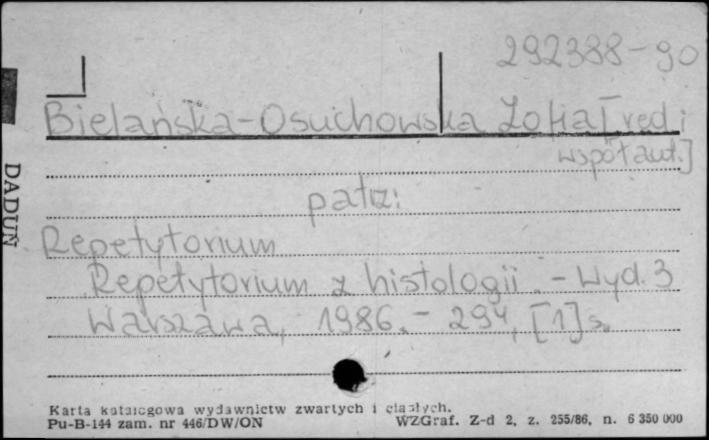 292388-90
Bielańska-Osuchowska Zofia [red i
współaut.]
patrz:
Repetytorium
Repetytorium z histologii. - Wyd. 3
Warszawa, 1986. - 294, [1] s.
DADUŃ
Karta katalogowa wydawnictw zwartych i ciągłych.
Pu-B-144 zam. nr 446/DW/ON
WZGraf. Z-d 2, z. 255/86, n. 6 350 000